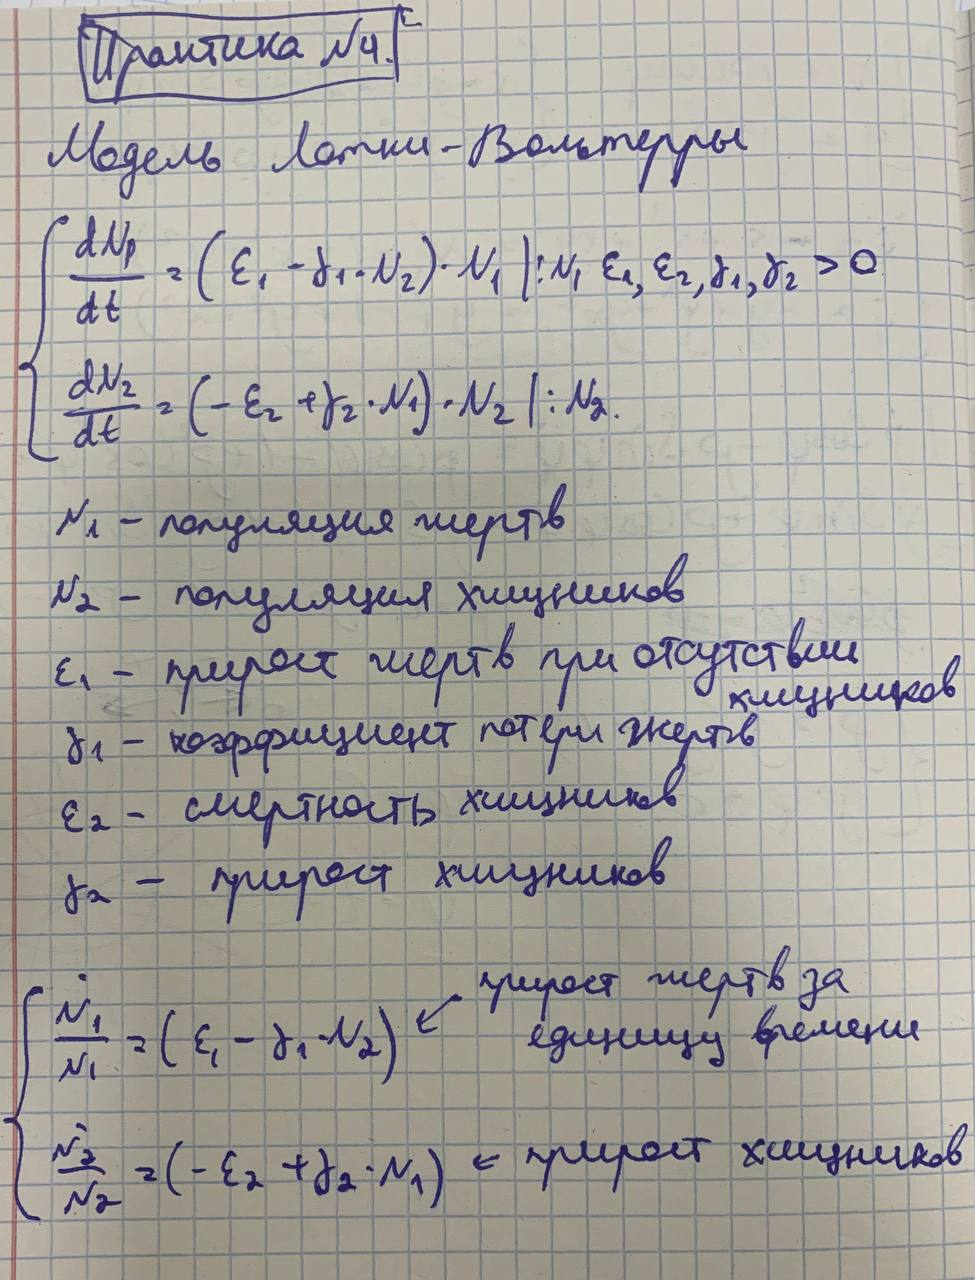 Практика №4.
Модель Лотки-Вольтерры
dN₁/dt = (ε₁ - γ₁·N₂)·N₁ |:N₁ ε₁, ε₂, γ₁, γ₂ > 0
dN₂/dt = (-ε₂ + γ₂·N₁)·N₂ |:N₂.
N₁ - популяция жертв
N₂ - популяция хищников
ε₁ - прирост жертв при отсутствии
хищников
γ₁ - коэффициент потери жертв
ε₂ - смертность хищников
γ₂ - прирост хищников
Ṅ₁/N₁ = (ε₁ - γ₁·N₂) ← прирост жертв за
единицу времени
Ṅ₂/N₂ = (-ε₂ + γ₂·N₁) ← прирост хищников